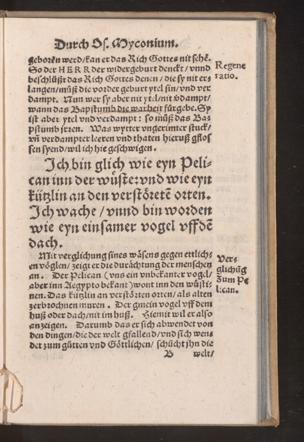 Durch Os. Myconium.
geborẽ werd/ kan er das Rich Gottes nit sehẽ.
So der HERR der widergeburt denckt / vnnd
beschlüßt das Rich Gottes denen / die sy nit er
langen/ müß die vorder geburt ytel sin/ vnd ver
dampt. Nun wer sy aber nit ytel/ nit v̈dampt/
wann das Bapstumb die warheit fürgebe. Sy
ist aber ytel vnd verdampt: so müß das Ba-
pstumb jrren. Was wytter vngerimter stuck/
vñ verdampter leeren vnd thaten hieruß gflos
sen syend/ wil ich hie gschwigen.
Regene
ratio.
Ich bin glich wie eyn Peli-
can inn der wüste: vnd wie eyn
kützlin an den verstöretẽ orten.
Ich wache / vnnd bin worden
wie eyn einsamer vogel vff dẽ
dach.
Mit verglichung sines wäsens gegen ettlich
en vöglen/ zeigt er die durächtung der menschen
an. Der Pelican (vns ein vnbekanter vogel/
aber inn Aegypto bekant) wont inn den wüsti-
nen. Das kützlin an verstörten orten/ als alten
zerbrochnen muren. Der gmein vogel vff dem
huß oder dach/ nit im huß. Hiemit wil er also
anzeigen. Darumb das er sich abwendet von
den dingen/ die der welt gfallend/ vnd sich wen-
det zum gütten vnd Göttlichen/ schücht jhn die
Ver-
glichũg
zum Pe
lican.
B welt/